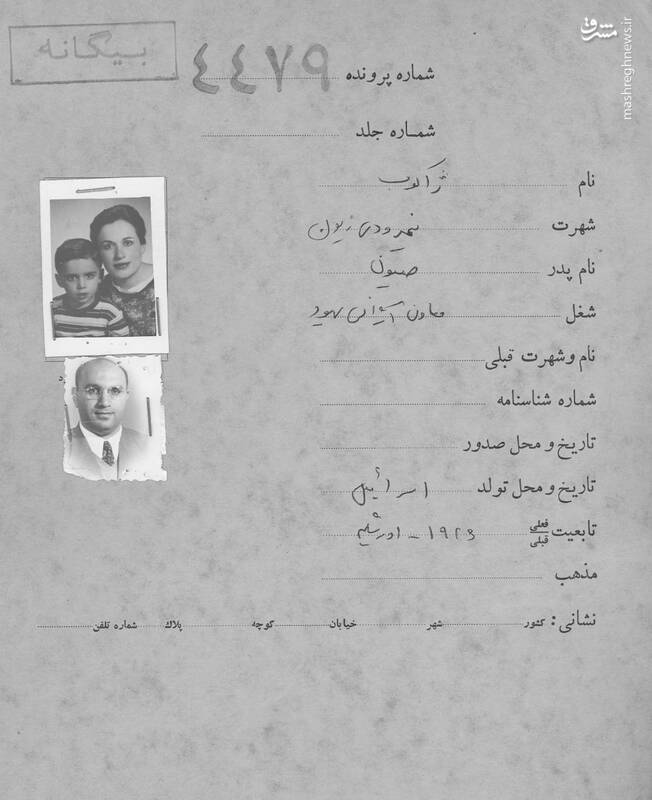 بیگانه
شماره پرونده ٤٤٧٩
شماره جلد
نام ژاکوب
شهرت نمرودی
نام پدر صیون
شغل معاون آژانس یهود
نام و شهرت قبلی
شماره شناسنامه
تاریخ و محل صدور
تاریخ و محل تولد اسرائیل
تابعیت فعلی قبلی ۱۹۲۶ - اورشلیم
مذهب
نشانی : کشور شهر خیابان کوچه پلاک شماره تلفن
مشرق
mashreghnews.ir